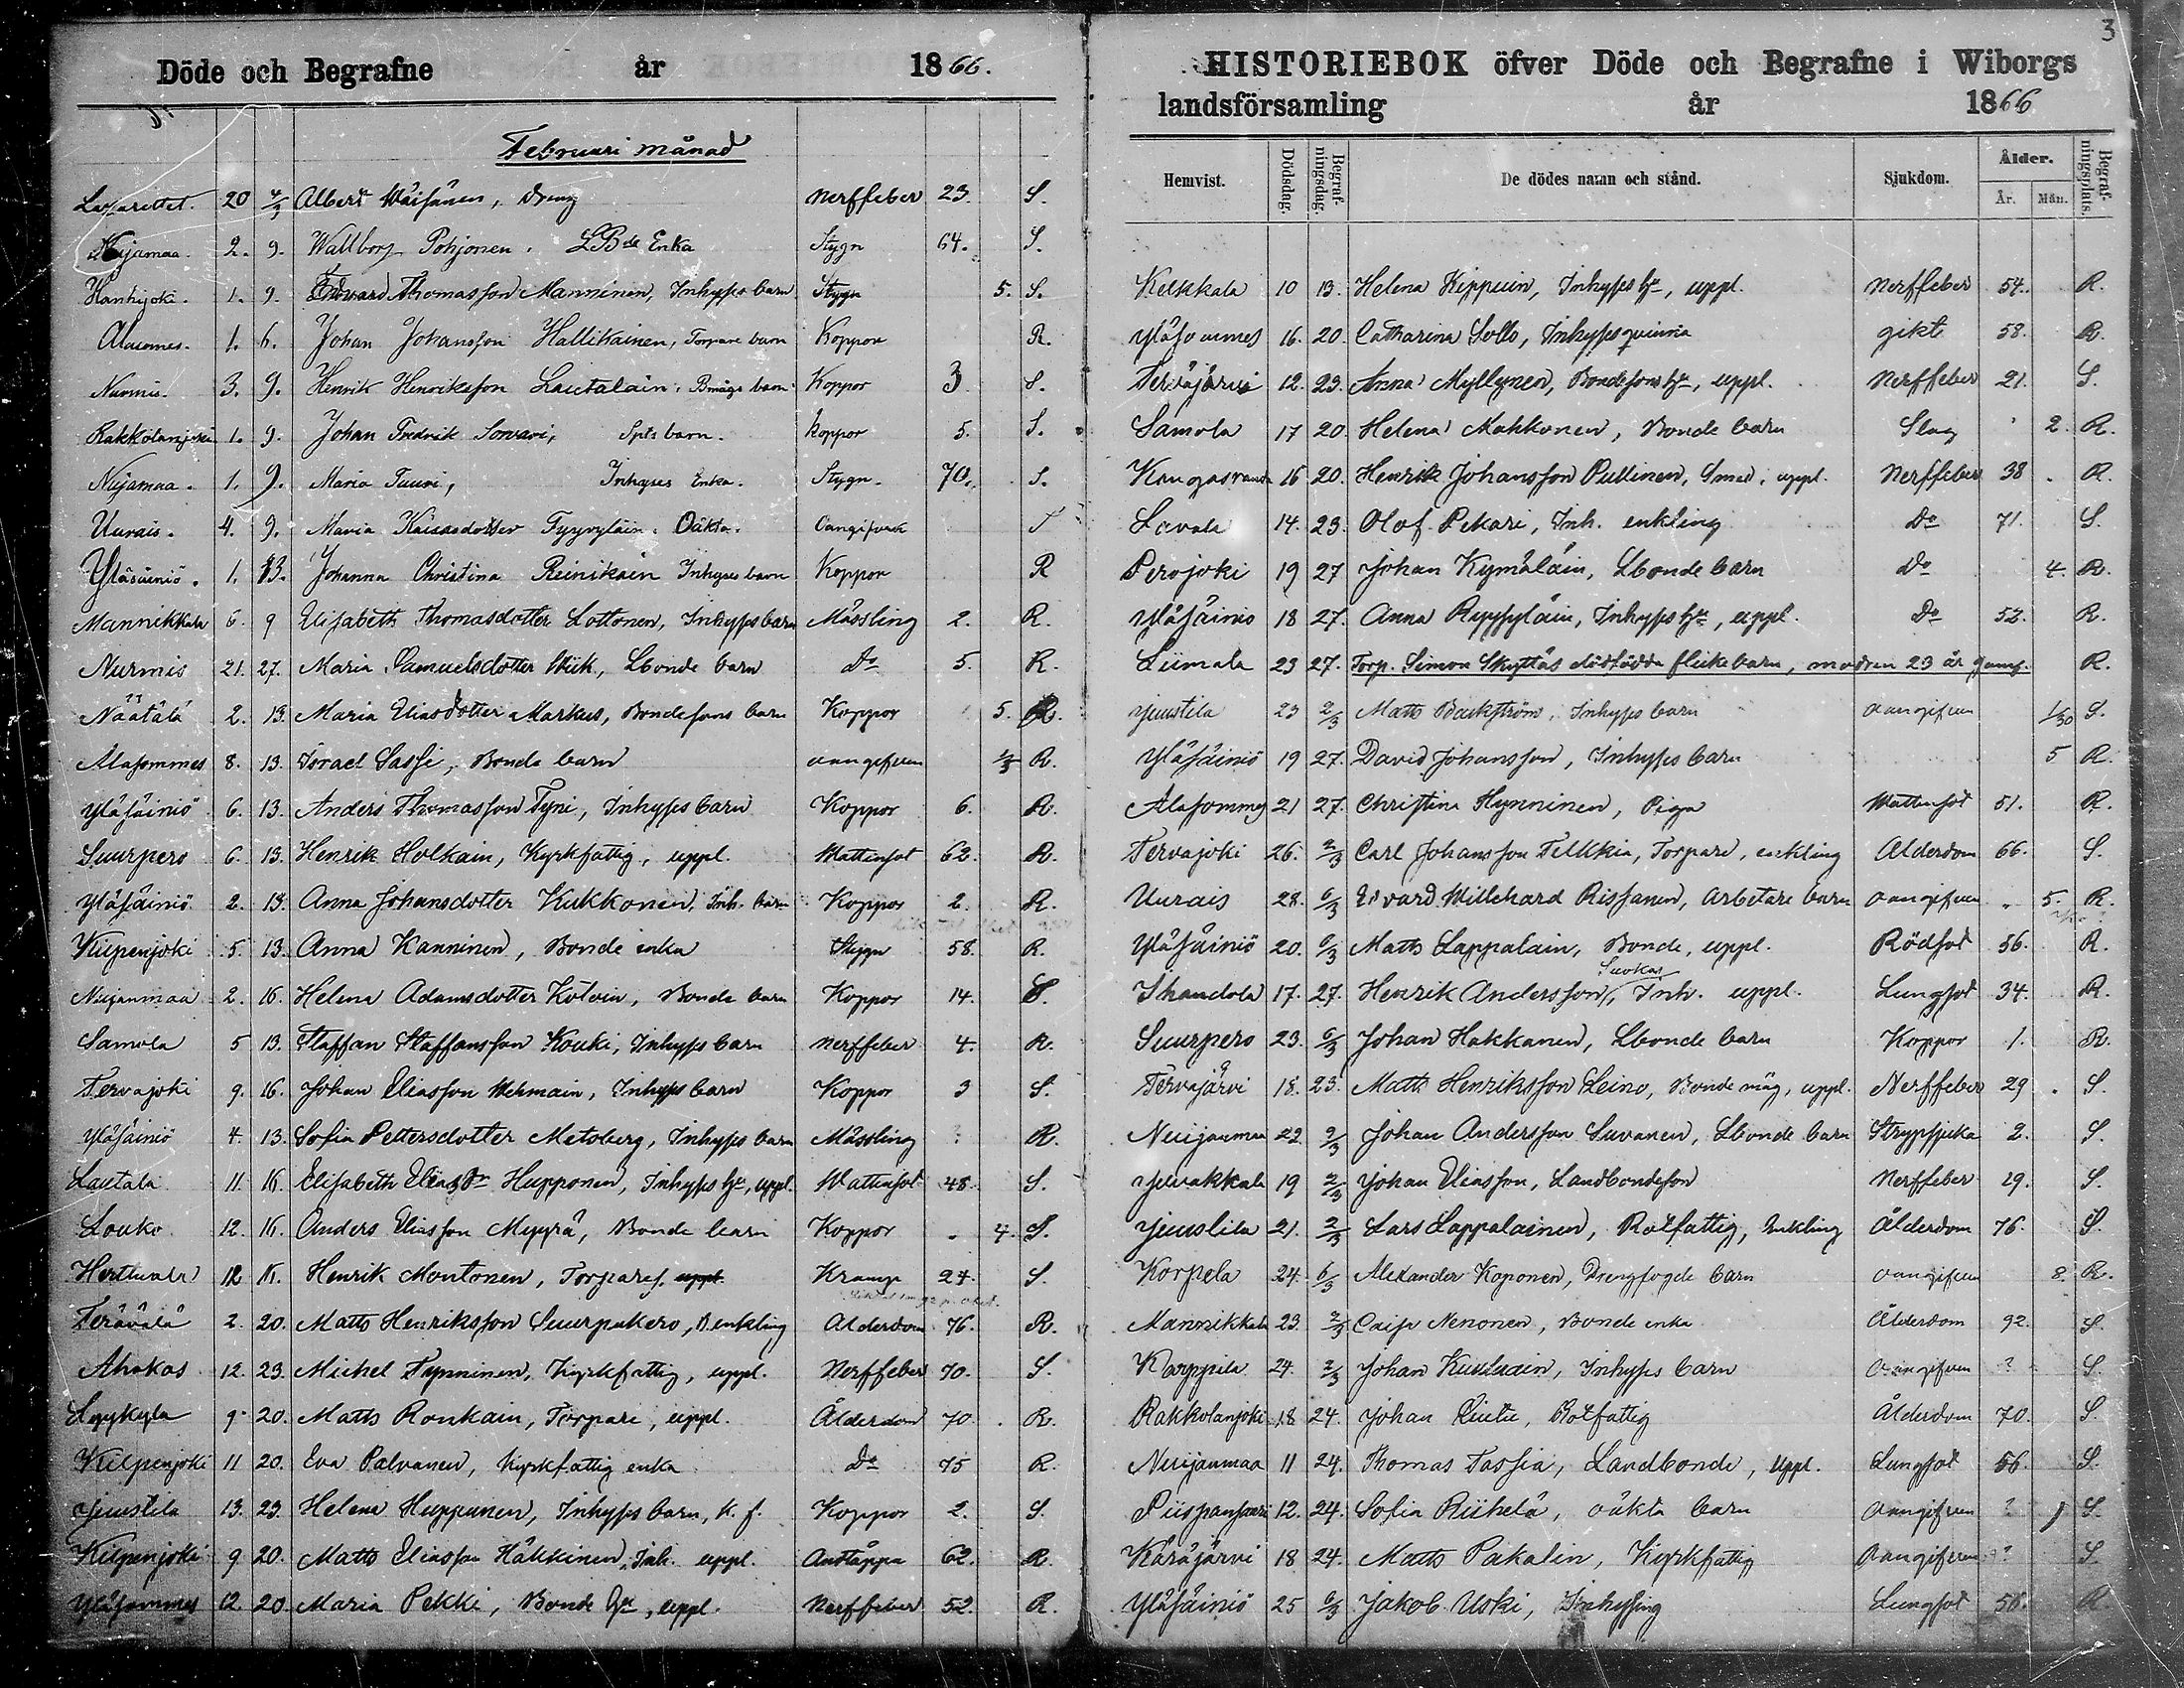 Döde och Begrafne år 1866.
Februari månad
Lazarettet. 20 4/3 Albert Wäisänen, Dreng Nerffeber 23. S.
Nujamaa. 2. 9. Wallborg Pohjonen. LBde Enka Stygn 64. S.
Hanhijoki. 1. 9. Edvard Thomasson Manninen, Inhyses barn Stygn 5. S.
Alasomes. 1. 6. Johan Johansson Hallikainen, Torpare barn Koppor R.
Nurmis. 3. 9. Henrik Henriksson Lautalain. Bmågs barn. Koppor 3 S.
Rakkolanjoki 1. 9. Johan Fredrik Sorvari, Spts barn. koppor 5. S.
Nujamaa. 1. 9. Maria Tuuri, Inhyses Enka. Stygn. 70. S.
Uurais. 4. 9. Maria Kaisasdotter Tyyryläin. Oäkta. Oangifven S
Yläsäiniö. 1. 13. Johanna Christina Reinikain Inhyses barn Koppor R
Mannikkala 6. 9 Elisabeth Thomasdotter Lottonen, Inhyses barn Mässling 2. R.
Nurmis 21. 27. Maria Samuelsdotter Wiik, Lbonde barn Do 5. R.
Näätälä 2. 13. Maria Eliasdotter Markus, Bondesons barn Koppor 5. R.
Alasommes 8. 13. Israel Sassi, Bonde barn oangifven 1/3 R.
Yläsäiniö 6. 13. Anders Thomasson Tyni, Inhyses barn Koppor 6. R.
Suurpero 6. 13. Henrik Holkain, Kyrkfattig, uppl. Wattusot 62. R.
Yläsäiniö 2. 13. Anna Johansdotter Kukkonen, Inh. barn Koppor 2. R.
Kilpenjoki 5. 13. Anna Kanninen, Bonde enka Stygn 58. R.
Nuijanmaa 2. 16. Helena Adamsdotter Kotvin, Bonde barn Koppor 14. S.
Samola 5 13. Staffan Staffansson Kouki, Inhyses barn Nerffeber 4. R.
Tervajoki 9. 16. Johan Eliasson Wehmain, Inhyses barn Koppor 3 S.
Yläsäiniö 4. 13. Sofia Pettersdotter Metsberg, Inhyses barn Mässling ? R.
Lautala 11. 16. Elisabeth Eliasdr Hupponen, Inhyses hu, uppl. Wattusot 48. S.
Louko 12. 16. Anders Eliasson Myyrä, Bonde barn Koppor 4. S.
Herttuala 12 16. Henrik Montonen, Torpares. uppl. Kramp 24. S.
Terävälä 2. 20. Matts Henriksson Suurpukero, B enkling Ålderdom 76. R.
Ahokas 12. 23. Michel Tynninen, Kyrkfattig, uppl. Nerffeber 70. S.
Lyykylä 9 20. Matts Ronkain, Torpare, uppl. Ålderdom 70 R.
Kilpenjoki 11 20. Eva Palvanen, Kyrkfattig enka Do 75 R.
Juustila 13. 23. Helena Huppunen, Inhyses barn, K. f. Koppor 2. S.
Kilpenjoki 9 20. Matts Eliasson Häkkinen, Inh. uppl. Andtäppa 62. R.
Yläsommes 12. 20 Maria Pekki, Bonde hu, uppl. Nerffeber 52. R.
3
HISTORIEBOK öfver Döde och Begrafne i Wiborgs
landsförsamling år 1866
Hemvist. Dödsdag. Begrafningsdag. De dödes namn och stånd. Sjukdom. Ålder. År. Mån. Begrafningsplats.
Kelkkala 10 13. Helena Kippuin, Inhyses hu, uppl. Nerffeber 54. R.
Yläsommes 16. 20. Catharina Sollo, Inhyses qvinna gikt 58. R.
Terväjärvi 12. 23. Anna Myllynen, Bondesons hu, uppl. Nerffeber 21. S.
Samola 17 20. Helena Mahkonen, Bonde barn Slag 2. R.
Kangasranda 16 20. Henrik Johansson Pullinen, Smed, uppl. Nerffeber 38 R.
Lavola 14. 23. Olof Pekari, Inh. enkling Do 71. S.
Perojoki 19 27 Johan Kymäläin, Lbonde barn Do 4. R.
Yläsäiniö 18 27. Anna Rypyläin, Inhyses hu, uppl. Do 52. R.
Liimala 23 27. Torp. Simon Skyttäs dödfödda flickebarn, modren 23 år gammal. R.
Juustila 23 2/3 Matts Backström, Inhyses barn oangifven 1/30 S.
Yläsäiniö 19 27. David Johansson, Inhyses barn 5 R.
Alasommes 21 27. Christina Hynninen, Piga Wattusot 51. R.
Tervajoki 26. 2/3 Carl Johansson Telkkiä, Torpare, enkling Ålderdom 66. S.
Uurais 28. 6/3 Edvard Willehard Rissanen, Arbetare barn oangifven 5. R.
Yläsäiniö 20. 6/3 Matts Lappalain, Bonde, uppl. Rödsot 56. R.
Suokas
Ihandola 17. 27. Henrik Andersson, Inh. uppl. Lungsot 34. R.
Suurpero 23. 6/3 Johan Hakkanen, Lbonde barn Koppor 1. R.
Tervajärvi 18. 23. Matts Henriksson Leino, Bonde måg, uppl. Nerffeber 29 S.
Nuijanmaa 22. 9/3 Johan Andersson Suvanen, Lbonde barn Strypsjuka 2. S.
Juvakkala 19 2/3 Johan Eliasson, Landbondeson Nerffeber 19. S.
Juustila 21. 2/3 Lars Lappalainen, Rotfattig, Enkling Ålderdom 76. S.
Korpela 24. 6/3 Alexander Koponen, Drengfogde barn oangifven 8. R.
Mannikkala 23. 2/3 Caisa Nenonen, Bonde enka Ålderdom 92. S.
Karppila 24. 2/3 Johan Kuuluain, Inhyses barn oangifven ? S.
Rakkolanjoki 18 24. Johan Liutu, Rotfattig Ålderdom 70. S.
Nuijanmaa 11 24. Thomas Tassia, Landbonde, uppl. Lungsot 56. S.
Piispansaari 12. 24. Sofia Riihelä, oäkta barn oangifven ? S.
Käräjärvi 18 24. Matts Pakalin, Kyrkfattig oangifven ? S.
Yläsäiniö 25 6/3 Jakob Uski, Inhysing Lungsot 56. R.